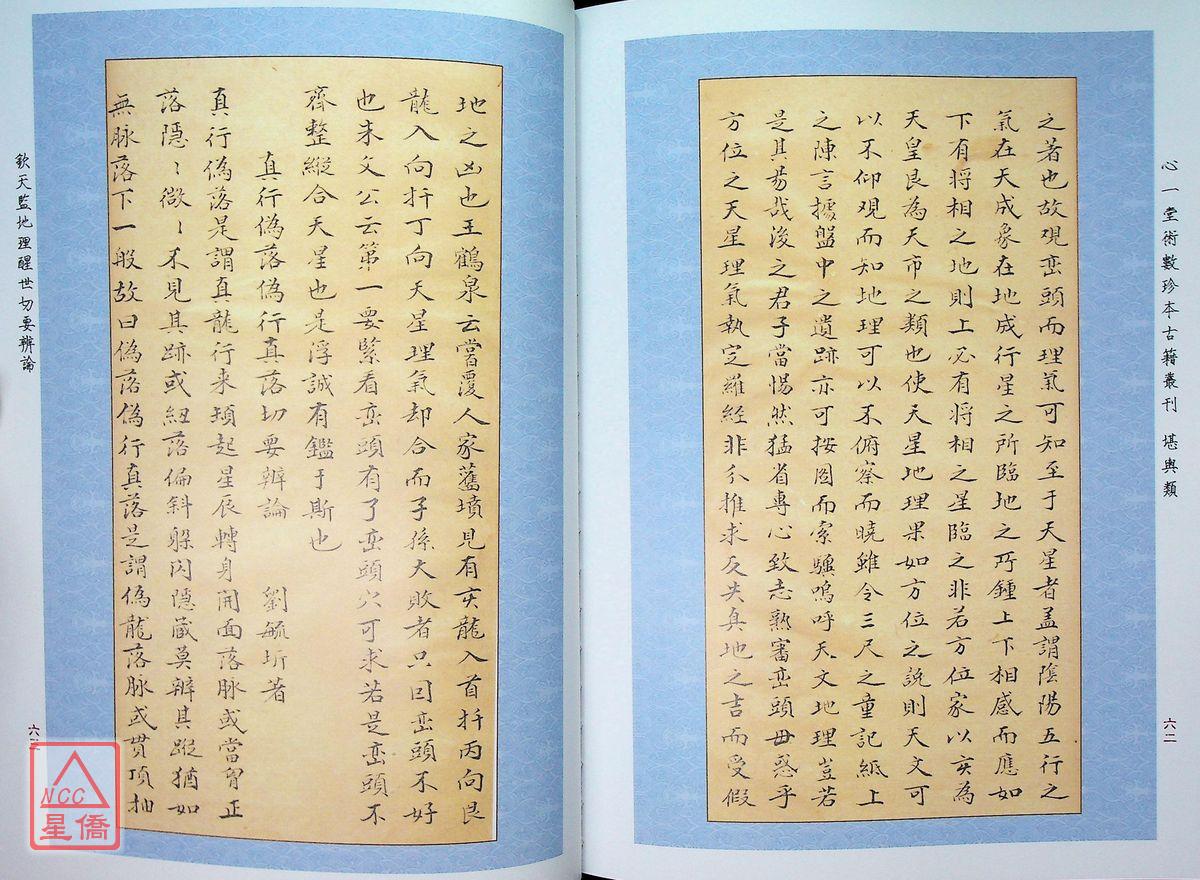 心一堂術數珍本古籍叢刊 堪輿類
六二
之著也故覌巒頭而理氣可知至于天星者盖謂陰陽五行之
氣在天成象在地成行星之所臨地之所鍾上下相感而應如
下有將相之地則上必有將相之星臨之非若方位家以亥為
天皇艮為天市之類也使天星地理果如方位之説則天文可
以不仰觀而知地理可以不俯察而曉雖令三尺之童記紙上
之陳言據盤中之遺跡亦可按圖而索驥嗚呼天文地理豈若
是其易哉後之君子當惕然猛省專心致志熟審巒頭毋惑乎
方位之天星理氣執定羅經非分推求反失真地之吉而受假
地之凶也王鶴泉云嘗覆人家舊墳見有亥龍入首扦丙向艮
龍入向扦丁向天星理氣却合而子孫大敗者只因巒頭不好
也朱文公云第一要緊看巒頭有了巒頭穴可求若是巒頭不
齊整縱合天星也是浮誠有鑑于斯也
真行偽落偽行真落切要辨論 劉毓圻著
真行偽落是謂真龍行来頓起星辰轉身開面落脉或當胷正
落隱〻微〻不見其跡或紐落偏斜躲閃隱藏莫辨其蹤猶如
無脉落下一般故曰偽落偽行真落是謂偽龍落脉或貫頂抽
欽天監地理醒世切要辨論
六三
NCC
星僑